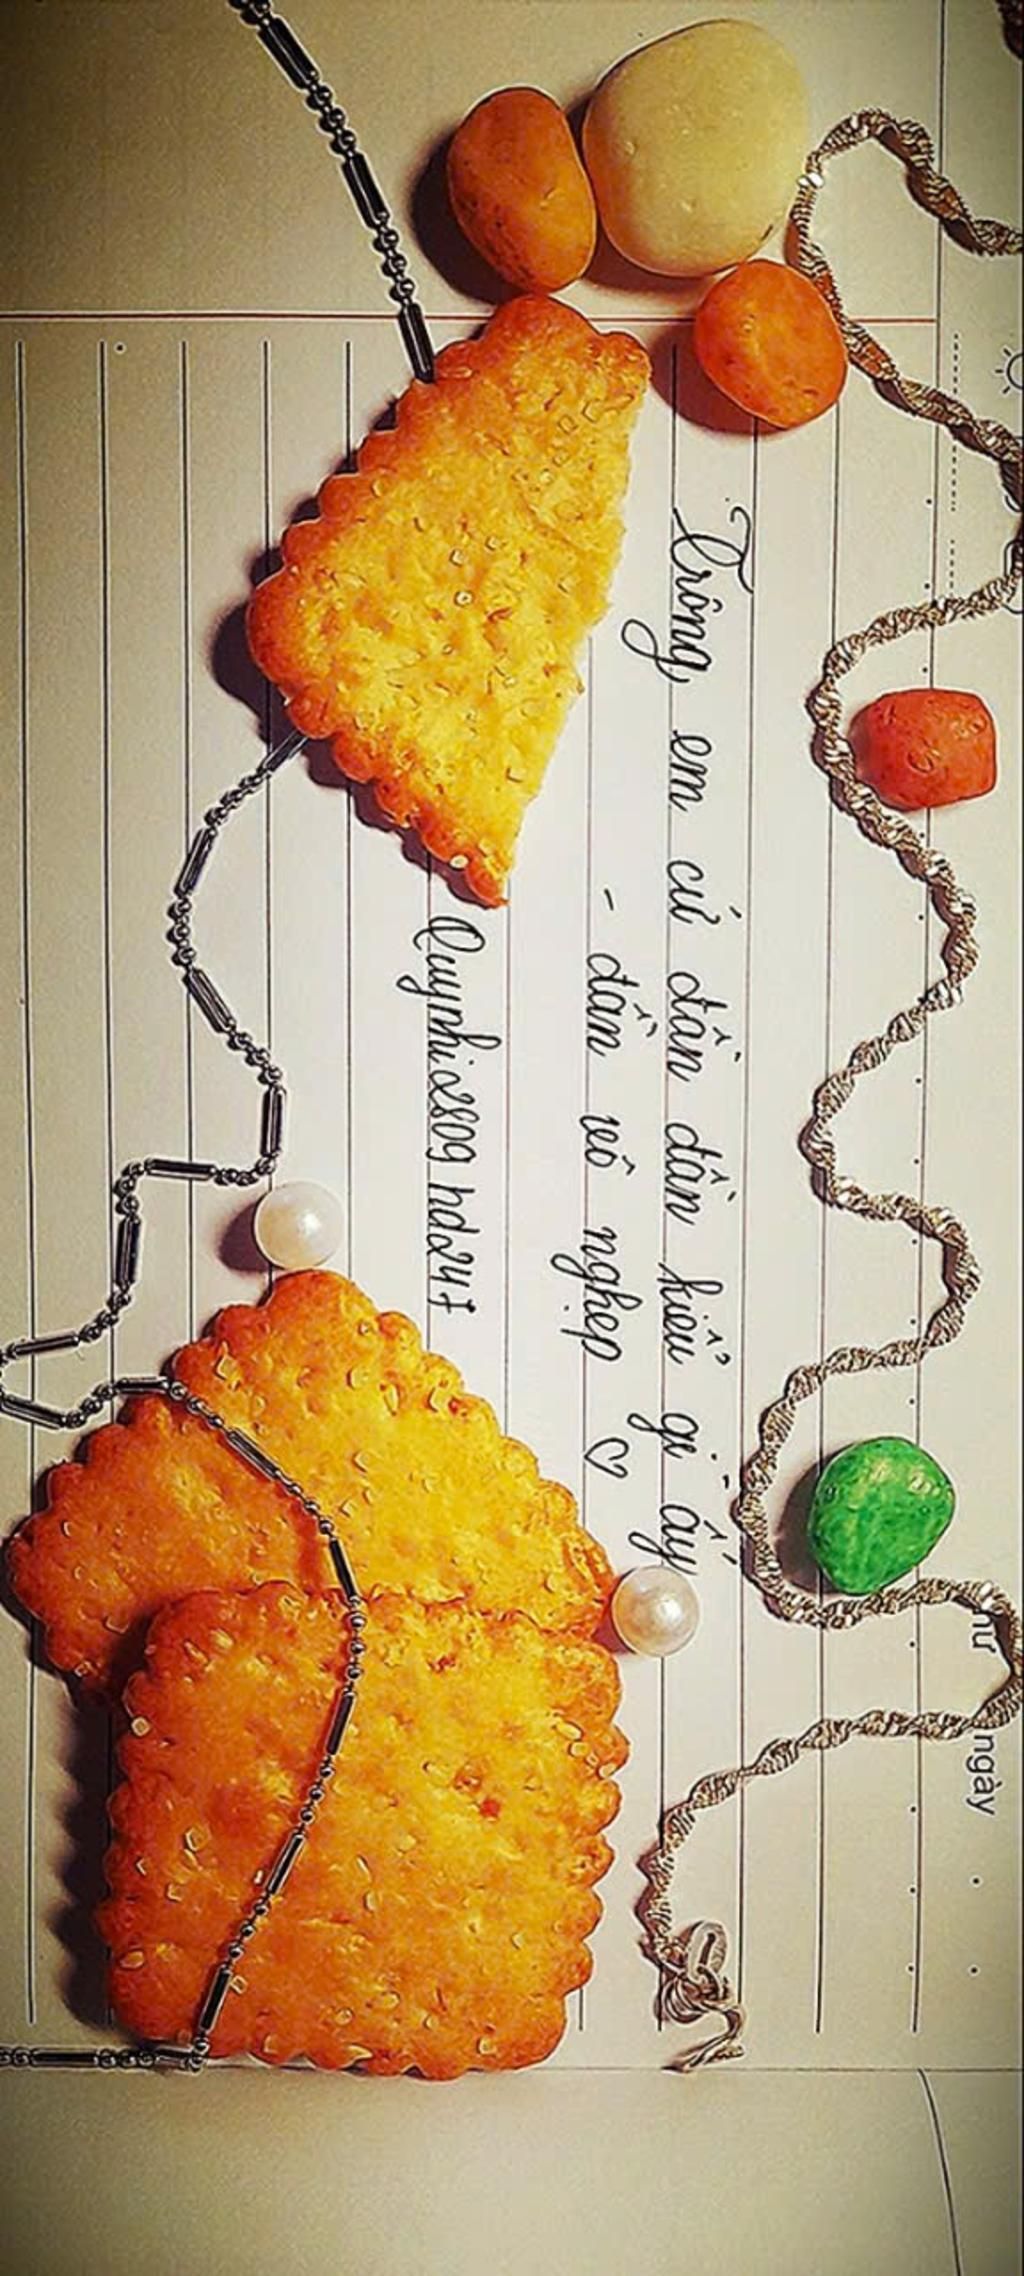 Thứ ngày
Trông em cứ đần đần kiểu gì ấy
- đần vô nghẹp ♡
Quynhhi2809hd247